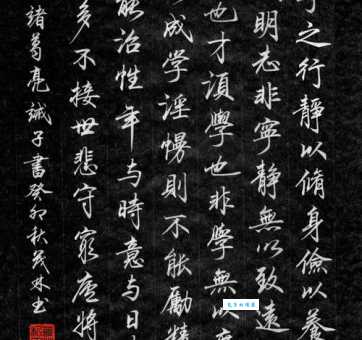 之行靜以脩身儉以養
明志非寧靜無以致遠
也才須學也非學無以
成学淫慢則不能勵精
能治性年与時意与日
多不接世悲守窮廬將
諸葛亮誡子書癸卯秋茂林书